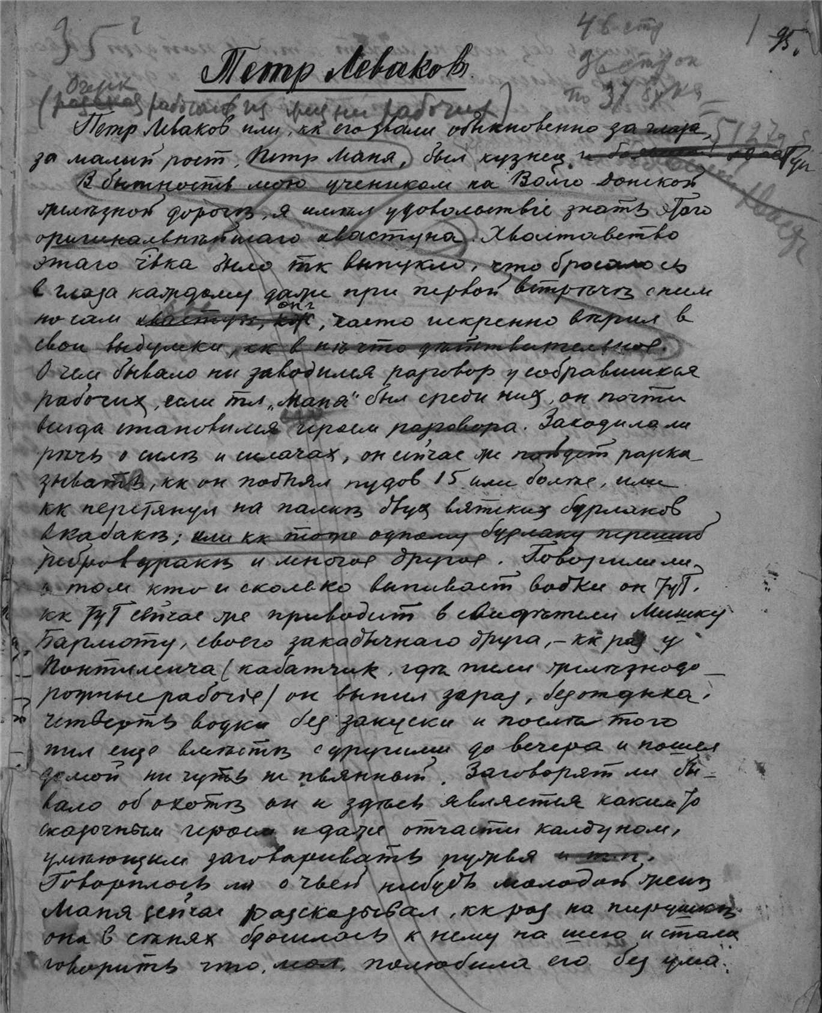 95.
Петр Леваков.
Очерк
(рассказ рабочего из жизни рабочих)
Петр Леваков или, кк его звали обыкновенно за глаза,
за малый рост, Петр Маня, был кузнец
В бытность мою учеником на Волго-Донской
железной дороге, я имел удовольствіе знать этого
оригинальнейшаго хвастуна. Хвастовство
этаго чвка было тк выпукло, что бросалось
в глаза каждому даже при первой встрѣчѣ с ним
но сам хвастун, он, часто искренно вѣрил в
свои выдумки, кк в нѣчто действительное.
О чем бывало ни заводился разговор у собравшихся
рабочих, если тл „Маня" был среди них, он почти
всегда становился героем разговора. Заходила ли
рѣчь о силѣ и силачах, он сейчас же пойдет расска
зывать, кк он поднял пудов 15 или болѣе, или
кк перетянул на палкѣ двух вятских бурлаков
в кабакѣ; или кк тоже одному бурлаку перешиб
ребро в дракѣ и многое другое. Говорили ли
о том кто и сколько выпивает водки он тут,
кк тут сейчас же приводит в свидѣтели Мишку
Бармоту, своего закадычнаго друга, – кк раз у
Понтилеича (кабатчик, гдѣ пили желѣзнодо–
рожные рабочіе) он выпил зараз, без отдыха,
четверть водки без закуски и послѣ того
пил еще вмѣстѣ с другими до вечера и пошел
домой ни чуть не пьянный. Заговорят ли бы–
вало об охотѣ он и здѣсь является каким то
сказочным героем и даже отчасти калдуном,
умѣющим заговаривать ружья и т.п.
Говорилось ли о чьей нибудь молодой женѣ
Маня сейчас разсказывал, кк раз на пирушкѣ
она в сѣнях бросилась к нему на шею и стала
говорить что, мол, полюбила его без ума